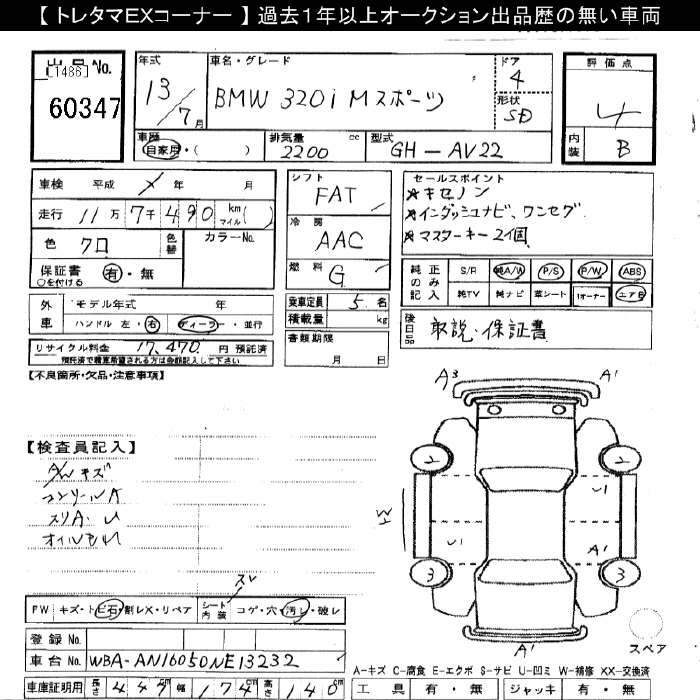 【 トレタマEXコーナー 】 過去1年以上オークション出品歴の無い車両
出品 No.
[1486]
60347
年式
13/7月
車名・グレード
BMW 320i Mスポーツ
ドア
4
形状
SD
評価点
4
内装 B
車歴
自家用・( )
排気量 cc
2200
型式
GH-AV22
車検 平成 年 月
走行 11万7千490 km マイル( )
色 クロ
色替
カラーNo.
保証書 有・無
○を付ける
シフト
FAT
冷房
AAC
燃料 G
セールスポイント
★キセノン
★インダッシュナビ、ワンセグ
★マスターキー2個
純正のみ記入
S/R 純A/W P/S P/W ABS
純TV 純ナビ 革シート 1オーナー エアB
外車
モデル年式 年
ハンドル 左・右 ディーラー・並行
乗車定員 5名
積載量 kg
書類期限
月 日
後日品 取説・保証書
リサイクル料金 17,470 円 預託済
預託済で積車希望される方は金額記入して下さい
【不良箇所・欠品・注意事項】
【検査員記入】
キズ
コンソールA
スリA・U
A3 A1
2 2
U1
W
U1 A1
3 3
A1
スペア
スレ
FW キズ・トビ石・割レX・リペア
シート内装 コゲ・穴・汚レ・破レ
登録 No.
車台 No. WBA-AN16050NE13232
車庫証明用 長さ 449cm 幅 174cm 高さ 140cm
A-キズ C-腐食 E-エクボ S-サビ U-凹ミ W-補修 XX-交換済
工具 有・無 ジャッキ 有・無